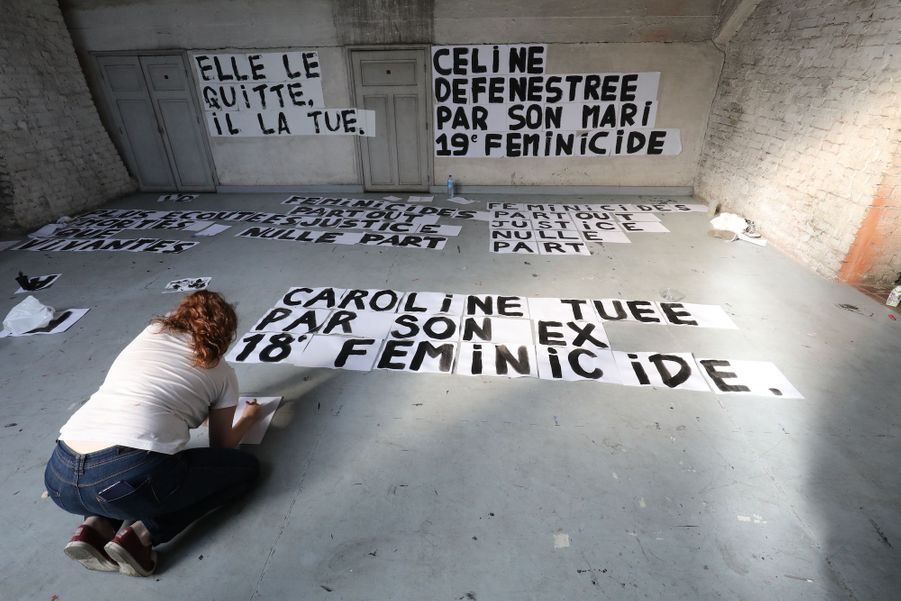 ELLE LE
QUITTE,
IL LA TUE.
CELINE
DEFENESTREE
PAR SON MARI
19e FEMINICIDE
PLUS ECOUTEES
VIVANTES
FEMINICIDES
PARTOUT
JUSTICE
NULLE PART
FEMINICIDES
PARTOUT
JUSTICE
NULLE
PART
CAROLINE TUEE
PAR SON EX
18e FEMINICIDE.